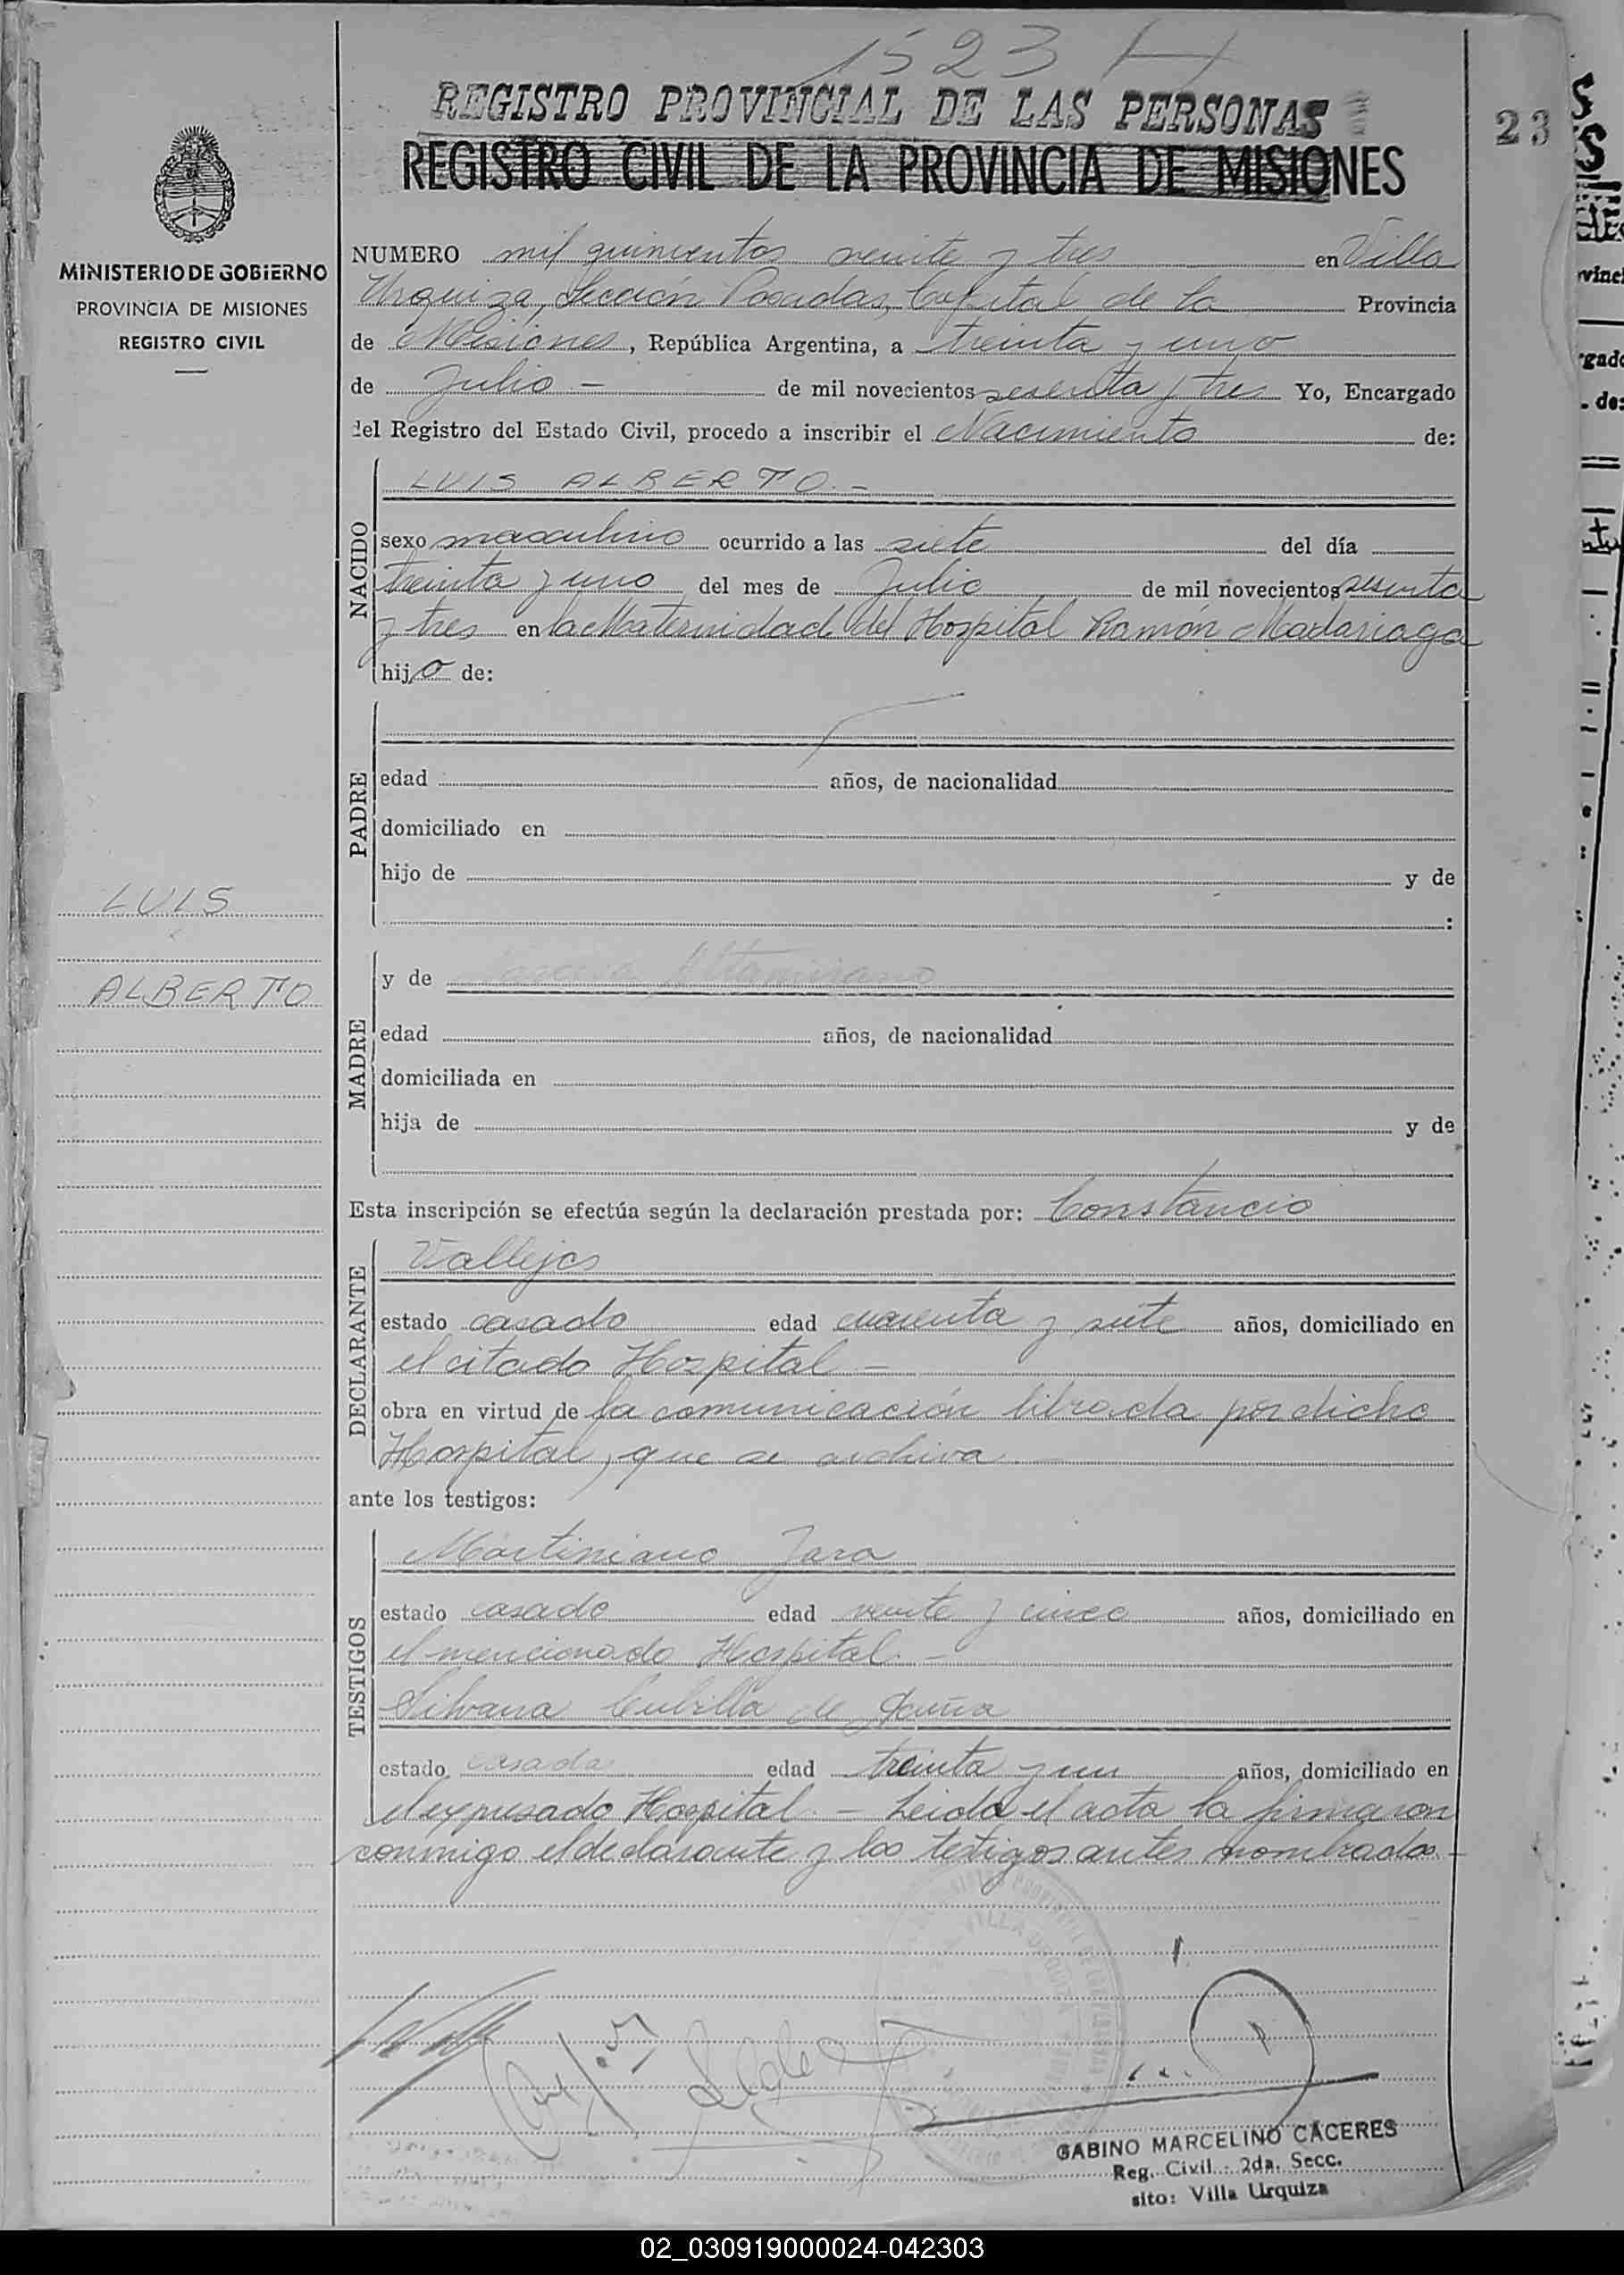 1523
REGISTRO PROVINCIAL DE LAS PERSONAS
23
REGISTRO CIVIL DE LA PROVINCIA DE MISIONES
MINISTERIO DE GOBIERNO
PROVINCIA DE MISIONES
REGISTRO CIVIL
LUIS
ALBERTO
NUMERO mil quinientos veinte y tres en Villa
Urquiza, Sección Posadas, Capital de la Provincia
de Misiones, República Argentina, a treinta y uno
de Julio - de mil novecientos sesenta y tres Yo, Encargado
del Registro del Estado Civil, procedo a inscribir el Nacimiento de:
NACIDO
LUIS ALBERTO. -
sexo masculino ocurrido a las siete del día
treinta y uno del mes de Julio de mil novecientos sesenta
y tres en la Maternidad del Hospital Ramón Madariaga
hijo de:
PADRE
edad años, de nacionalidad
domiciliado en
hijo de y de
:
MADRE
y de Altamirano
edad años, de nacionalidad
domiciliada en
hija de y de
Esta inscripción se efectúa según la declaración prestada por: Constancio
DECLARANTE
Vallejos
estado casado edad cuarenta y siete años, domiciliado en
el citado Hospital -
obra en virtud de la comunicación librada por dicho
Hospital, que se archiva. -
ante los testigos:
TESTIGOS
Martiniano Jara
estado casado edad veinte y cinco años, domiciliado en
el mencionado Hospital. -
Silvana Cubilla de Acuña
estado casada edad treinta y un años, domiciliado en
el expresado Hospital. - Leida el acta la firmaron
conmigo el declarante y los testigos antes nombrados. -
GABINO MARCELINO CACERES
Reg. Civil - 2da. Secc.
sito: Villa Urquiza
02_030919000024-042303